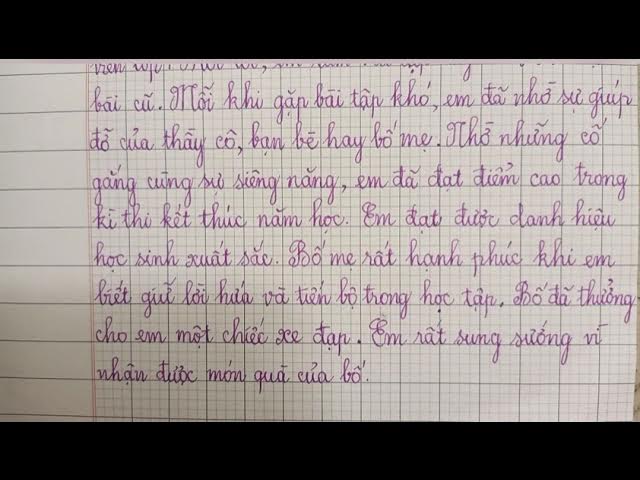 bài cũ. Mỗi khi gặp bài tập khó, em đã nhờ sự giúp
đỡ của thầy cô, bạn bè hay bố mẹ. Nhờ những cố
gắng cùng sự siêng năng, em đã đạt điểm cao trong
kì thi kết thúc năm học. Em đạt được danh hiệu
học sinh xuất sắc. Bố mẹ rất hạnh phúc khi em
biết giữ lời hứa và tiến bộ trong học tập. Bố đã thưởng
cho em một chiếc xe đạp. Em rất sung sướng vì
nhận được món quà của bố.